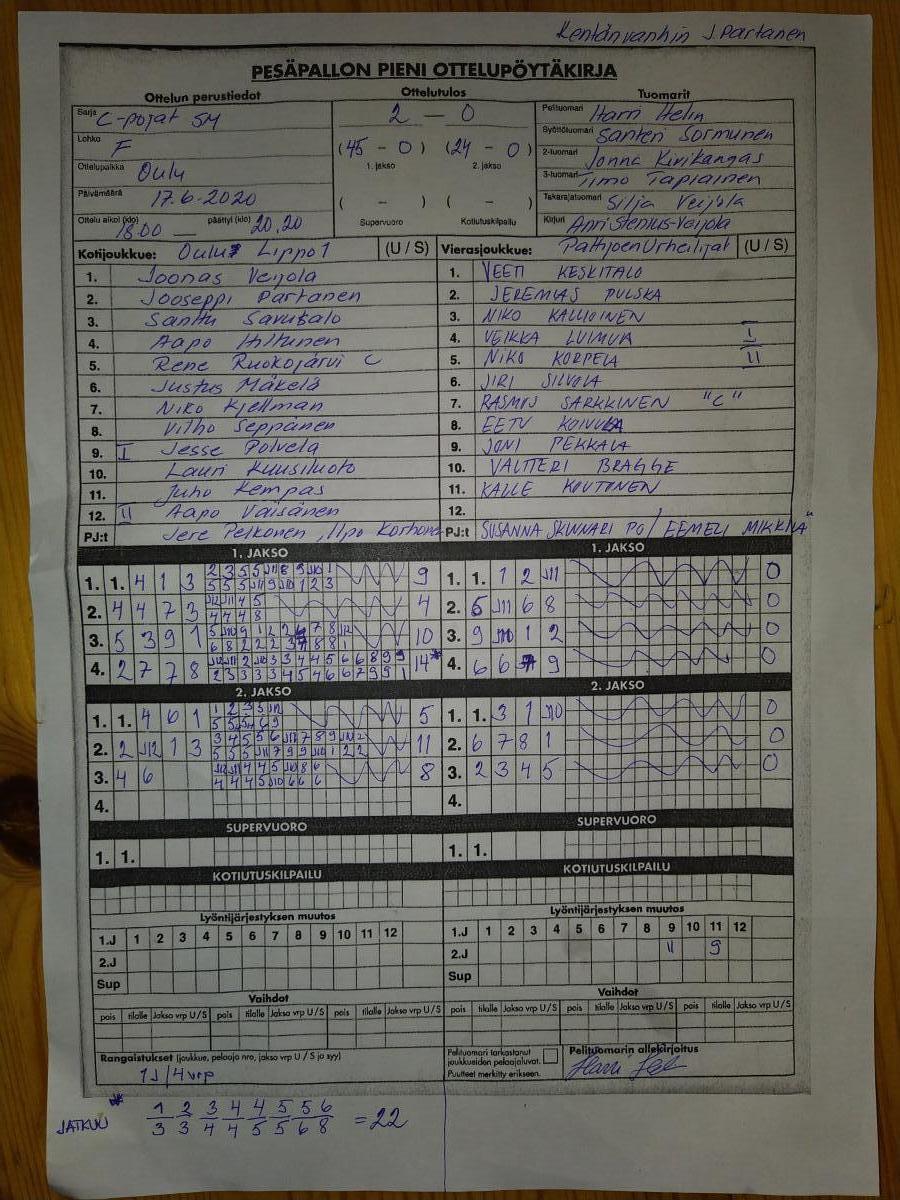 Kentänvanhin J. Partanen
PESÄPALLON PIENI OTTELUPÖYTÄKIRJA
Ottelun perustiedot
Sarja C-pojat SM
Lohko F
Ottelupaikka Oulu
Päivämäärä 17.6-2020
Ottelu alkoi (klo) 18.00 päättyi (klo) 20.20
Ottelutulos
2 - 0
(45 - 0) (24 - 0)
1. jakso 2. jakso
( - ) ( - )
Supervuoro Kotiutuskilpailu
Tuomarit
Pelituomari Harri Helin
Syöttötuomari Santeri Sormunen
2-tuomari Jonna Kivikangas
3-tuomari Timo Tapiainen
Takarajatuomari Silja Veijola
Kirjuri Anri Stenius-Veijola
Kotijoukkue: Oulu Lippo 1 (U / S)
1. Joonas Veijola
2. Jooseppi Partanen
3. Santtu Savukalo
4. Aapo Hiltunen
5. Rene Ruokojärvi C
6. Justus Mäkelä
7. Niko Kjellman
8. Vilho Seppänen
9. I Jesse Polvela
10. Lauri Kuusiluoto
11. Juho Kempas
12. II Aapo Väisänen
PJ:t Jere Pelkonen, Ilpo Korhonen
Vierasjoukkue: Pattijoen Urheilijat (U / S)
1. VEETI KESKITALO
2. JEREMIAS PULSKA
3. NIKO KALLIOINEN
4. VEIKKA LUIMULA I
5. NIKO KORPELA II
6. JIRI SILVOLA
7. RASMUS SARKKINEN "C"
8. EETU KOIVULA
9. JONI PEKKALA
10. VALTTERI BRAGGE
11. KALLE KOUTONEN
12.
PJ:t SUSANNA SKINNARI PO / EEMELI MIKKILÄ
1. JAKSO
1. 1. 4 1 3 9
2. 4 4 7 3 4
3. 5 3 9 1 10
4. 2 7 7 8 14*
1. JAKSO
1. 1. 1 2 J11 0
2. 5 J11 6 8 0
3. 9 J10 1 2 0
4. 6 6 9 0
2. JAKSO
1. 1. 4 6 1 5
2. 2 J12 1 3 11
3. 4 6 8
4.
2. JAKSO
1. 1. 3 1 J10 0
2. 6 7 8 1 0
3. 2 3 4 5 0
4.
SUPERVUORO
1. 1.
SUPERVUORO
1. 1.
KOTIUTUSKILPAILU
KOTIUTUSKILPAILU
Lyöntijärjestyksen muutos
1.J 1 2 3 4 5 6 7 8 9 10 11 12
2.J
Sup
Lyöntijärjestyksen muutos
1.J 1 2 3 4 5 6 7 8 9 10 11 12
2.J 11 9
Sup
Vaihdot
pois tilalle Jakso vrp U/S pois tilalle Jakso vrp U/S pois tilalle Jakso vrp U/S
Vaihdot
pois tilalle Jakso vrp U/S pois tilalle Jakso vrp U/S pois tilalle Jakso vrp U/S
Rangaistukset (joukkue, pelaaja nro, jakso vrp U / S ja syy)
1J/4vrp
Pelituomari tarkastanut
joukkueiden pelaajaluvat.
Puutteet merkitty erikseen.
Pelituomarin allekirjoitus
JATKUU * 1 2 3 4 4 5 5 6 = 22
3 3 4 4 5 5 6 8